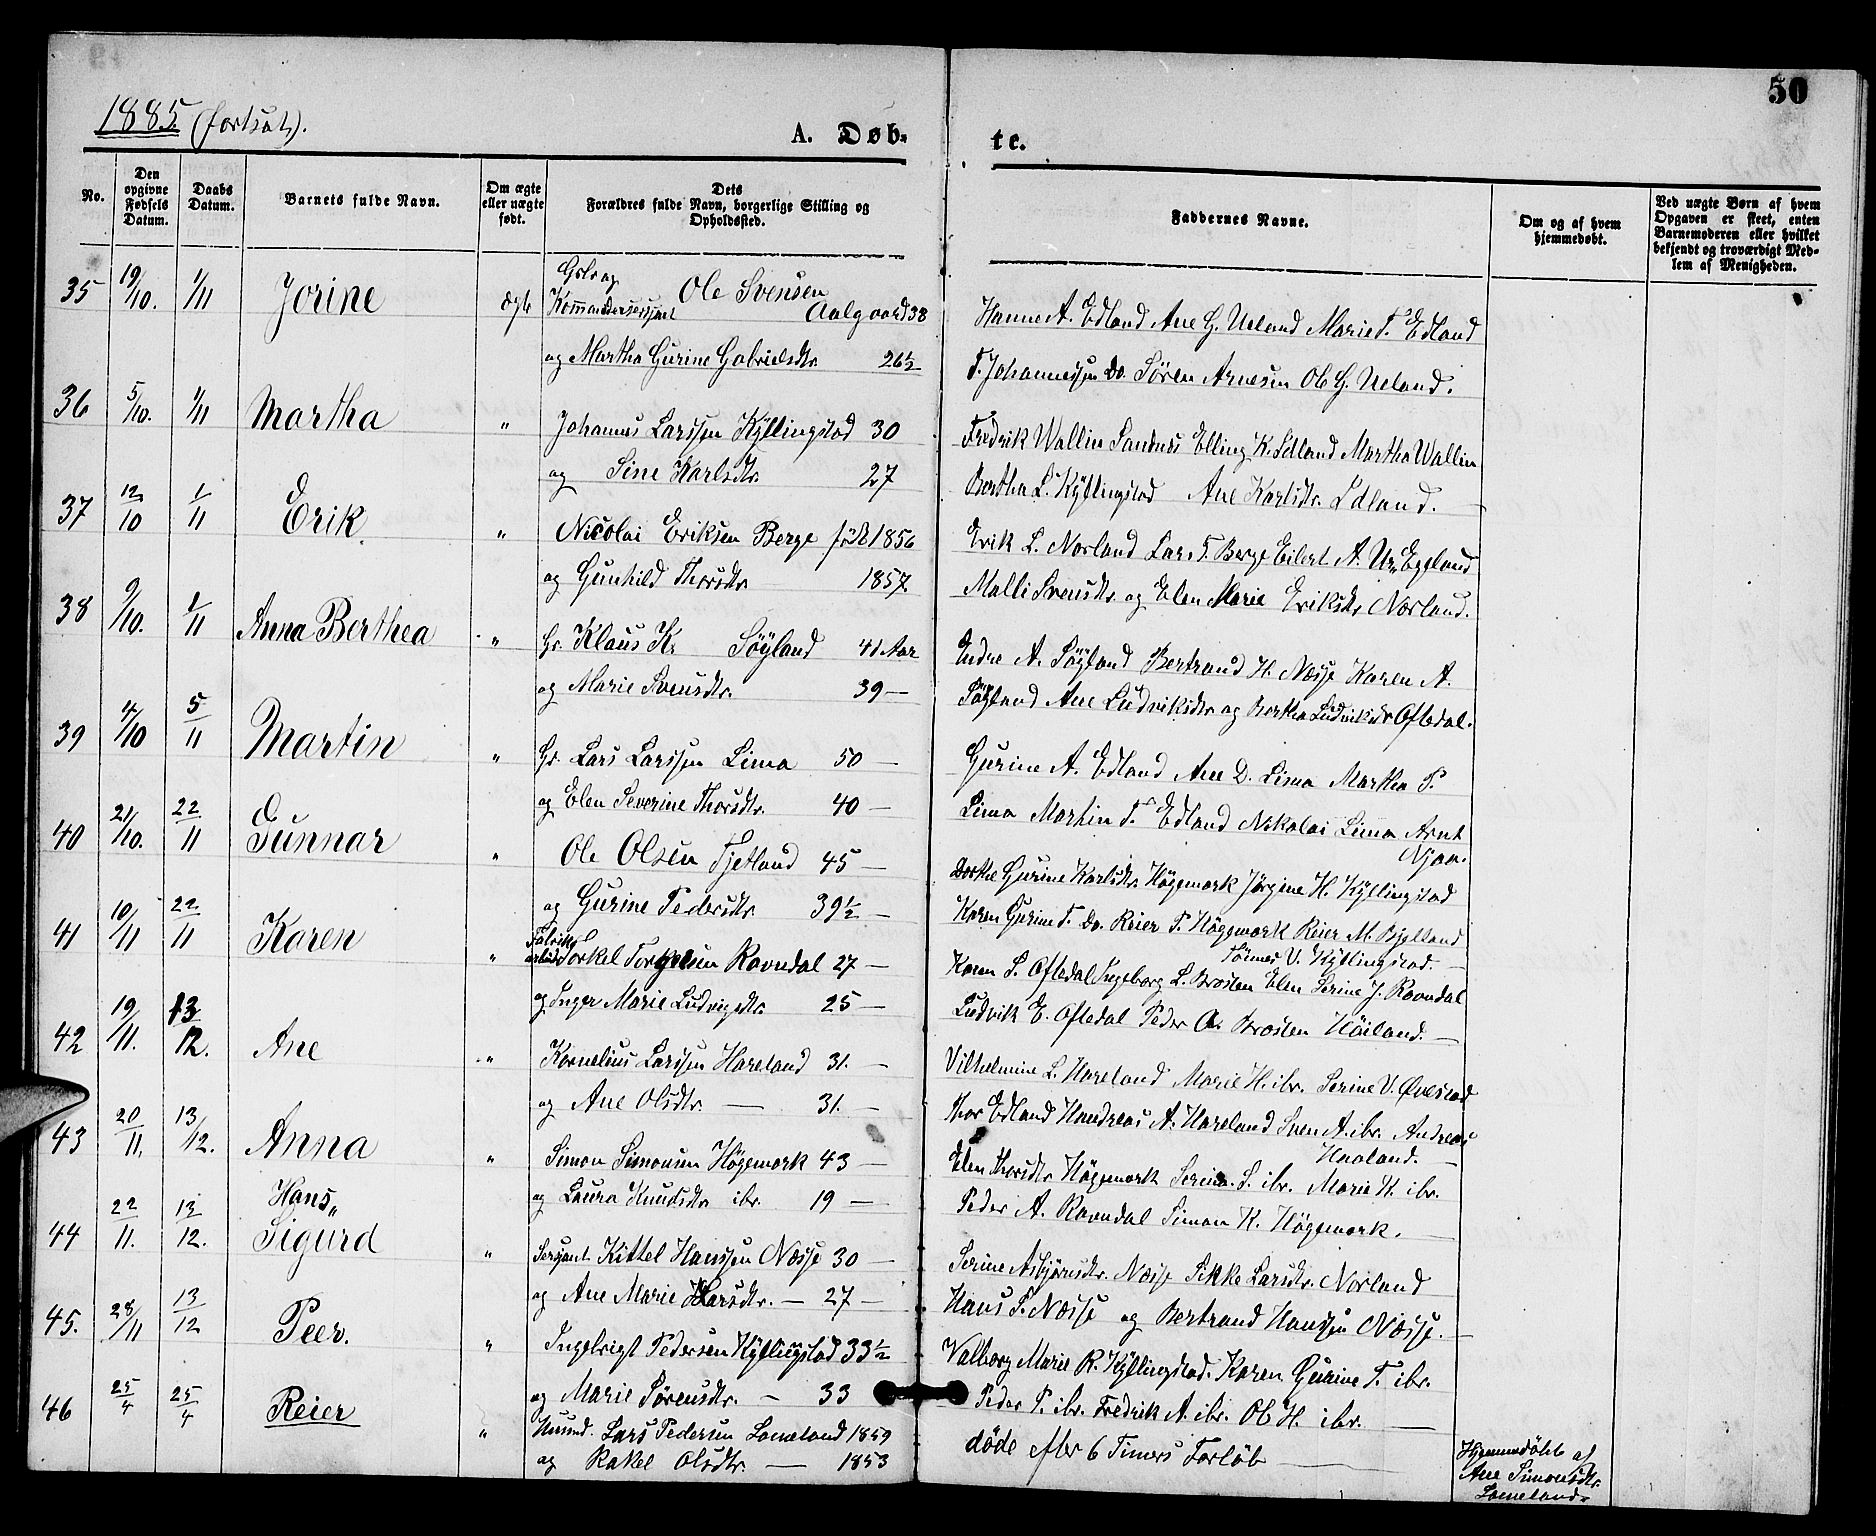 50
1885 (fortsat).
A. Døb-
te.
No.
Den opgivne Fødsels Datum.
Daabs Datum.
Barnets fulde Navn.
Om ægte eller uægte født.
Dets Forældres fulde Navn, borgerlige Stilling og Opholdssted.
Faddernes Navne.
Om og af hvem hjemmedøbt.
Ved uægte Børn af hvem Opgaven er skeet, enten Barnemoderen eller hvilket bekjendt og troværdigt Medlem af Menigheden.
35 19/10. 1/11 Jorine ægte
Ole Svensen
Aalgaard 38
og Martha Gurine Gabrielsdtr. 26½
Hanne A. Edland Ane G. Ueland Marie T. Edland
T. Johannessen do. Sören Arnesen Ole G. Ueland.
36 5/10. 1/11 Martha "
Johannes Larssen Kyllingstad 30
og Sine Karlsdtr. 27
Fredrik Wallin Sandnes Elling K. Edland Martha Wallin
Bertha L. Kyllingstad Ane Karlsdtr. Edland.
37 12/10 1/11 Erik "
Nicolai Eriksen Berge född 1856
og Gunhild Thorsdtr. 1857.
Erik L. Norland Lars T. Berge Eilert A. Eggland
Malli Svensdtr. og Elen Marie Eriksdtr. Norland.
38 9/10. 1/11 Anna Berthea "
Gr. Klaus K. Söyland 41 Aar
og Marie Svensdtr. 39 —
Endre A. Söyland Bertrand H. Næsse Karen A.
Söyland Ane Ludviksdtr og Bertha Ludviksdtr Oftedal.
39 4/10 5/11 Martin "
Gr. Lars Larssen Lima 50 —
og Elen Severine Thorsdtr. 40 —
Gurine A. Edland Ane D. Lima Martha P.
Lima Martin T. Edland Nikolai Lima Arnt
Njaa.
40 21/10. 22/11 Gunnar "
Ole Olsen Fjetland 45 —
og Gurine Pedersdtr. 39½ —
Dorthe Gurine Karlsdtr. Högemork Jörgine H. Kyllingstad
Karen Gurine T. do. Reier P. Högemork Reier M. Bjelland
Tönnes V. Kyllingstad. —
41 10/11 22/11 Karen "
Fabrik
arbeider Torkel Torkelsen Ravndal 27 —
og Inger Marie Ludvigsdtr. 25 —
Karen S. Oftedal Ingeborg L. Brosten Elen Serine J. Ravndal
Ludvik E. Oftedal Peder A. Brosten Höiland. —
42 19/11. 13/12. Ane "
Kornelius Larssen Hareland 31. —
og Ane Olsdtr. — 31. —
Vilhelmine L. Hareland Marie H. ibr. Serine V. Ovestad
Thor Edland Handreas A. Hareland Sven A. ibr. Andreas
Haaland. —
43 20/11. 13/12. Anna "
Simon Simonsen Högemork 43 —
og Laura Knudsdtr. ibr. 19 —
Elen Thorsdtr Högemork Serine S. ibr. Marie K. ibr.
Peder A. Ravndal Simon K. Högemork. —
44 22/11. 13/12. Hans
Sigurd "
Sersjant Kittel Hanssen Næsse 30 —
og Ane Marie Larsdtr. — 27 —
Serine Asbjörnsdtr. Næsse Sikke Larsdtr. Norland
Hans P. Næsse og Bertrand Hanssen Næsse. —
45. 28/11 13/12 Peer. "
Ingebrigt Pedersen Kyllingstad 33½
og Marie Sörensdtr. — 33
Valborg Marie R. Kyllingstad. Karen Gurine T. ibr.
Peder P. ibr. Fredrik A. ibr. Ole H. ibr. —
46 25/4 25/4 Reier "
Husmd. Lars Pedersen Lomeland 1859
og Rakel Olsdtr. — 1853
döde efter 6 Timers Forlöb —
Hjemmedöbt af
Ane Simonsdtr.
Lomeland.